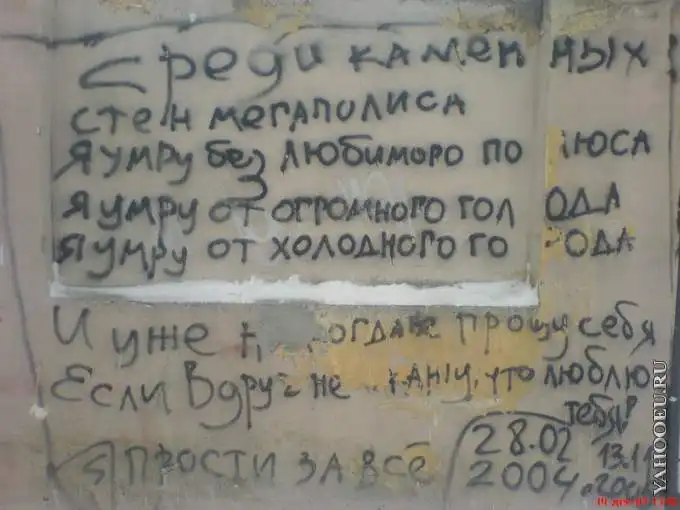 Среди камен ных
стен мегаполиса
Я умру без любиморо по люса
Я умру от огромного гол ода
Я умру от холодного го рода
И уже прощу себя
Если Вдруг не что люблю
тебя!
Я ПРОСТИ ЗА ВСЁ
28.02
2004
13.1
YAHOOEU.RU